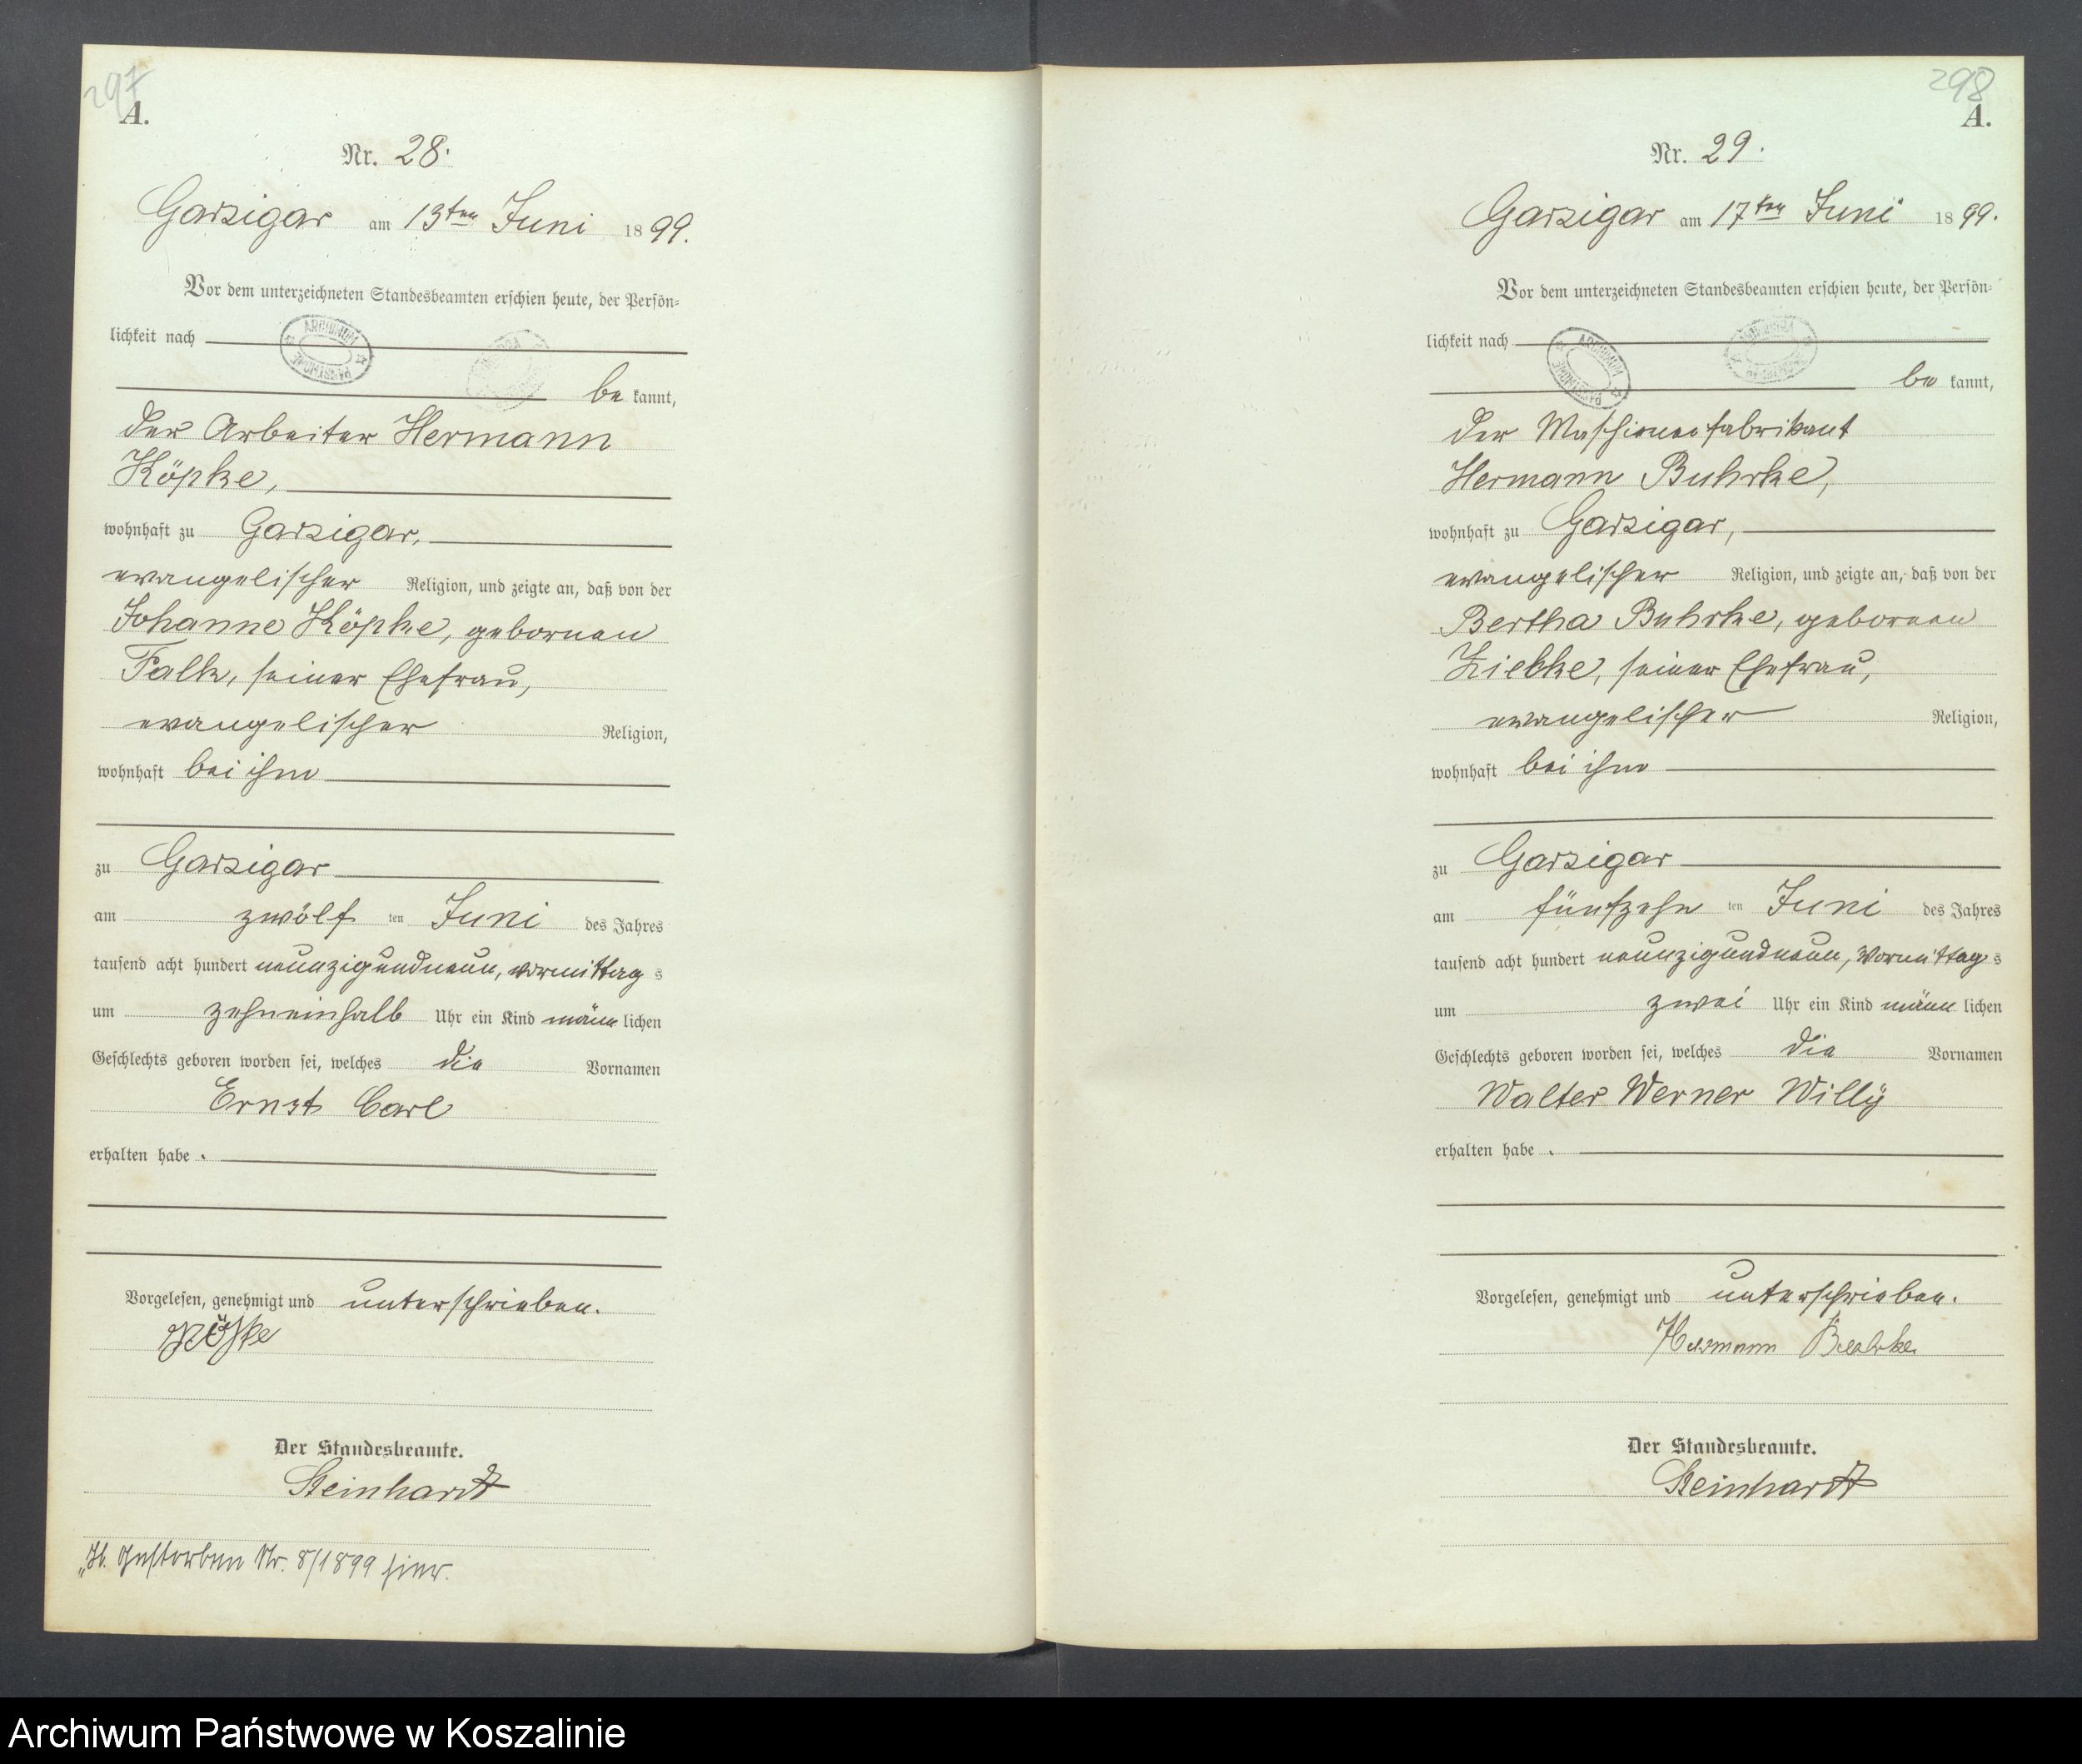 297
A.
Nr. 28.
Garzigar am 13ten Juni 1899.
Vor dem unterzeichneten Standesbeamten erschien heute, der Persön-
lichkeit nach
bekannt,
der Arbeiter Hermann
Köpke,
wohnhaft zu Garzigar,
evangelischer Religion, und zeigte an, daß von der
Johanne Köpke, geborenen
Falk, seiner Ehefrau,
evangelischer Religion,
wohnhaft bei ihm
zu Garzigar
am zwölften Juni des Jahres
tausend acht hundert neunzigundneun, vormittags
um zehneinhalb Uhr ein Kind männlichen
Geschlechts geboren worden sei, welches die Vornamen
Ernst Carl
erhalten habe.
Vorgelesen, genehmigt und unterschrieben.
Köpke
Der Standesbeamte.
Steinhardt
Gestorben Nr. 8/1899 hier.
298
A.
Nr. 29.
Garzigar am 17ten Juni 1899.
Vor dem unterzeichneten Standesbeamten erschien heute, der Persön-
lichkeit nach
bekannt,
der Maschinenfabrikant
Hermann Buhrke,
wohnhaft zu Garzigar,
evangelischer Religion, und zeigte an, daß von der
Bertha Buhrke, geborenen
Ziebke, seiner Ehefrau,
evangelischer Religion,
wohnhaft bei ihm
zu Garzigar
am fünfzehnten Juni des Jahres
tausend acht hundert neunzigundneun, Vormittags
um zwei Uhr ein Kind männlichen
Geschlechts geboren worden sei, welches die Vornamen
Walter Werner Willÿ
erhalten habe.
Vorgelesen, genehmigt und unterschrieben.
Hermann Buhrke
Der Standesbeamte.
Steinhardt
Archiwum Państwowe w Koszalinie